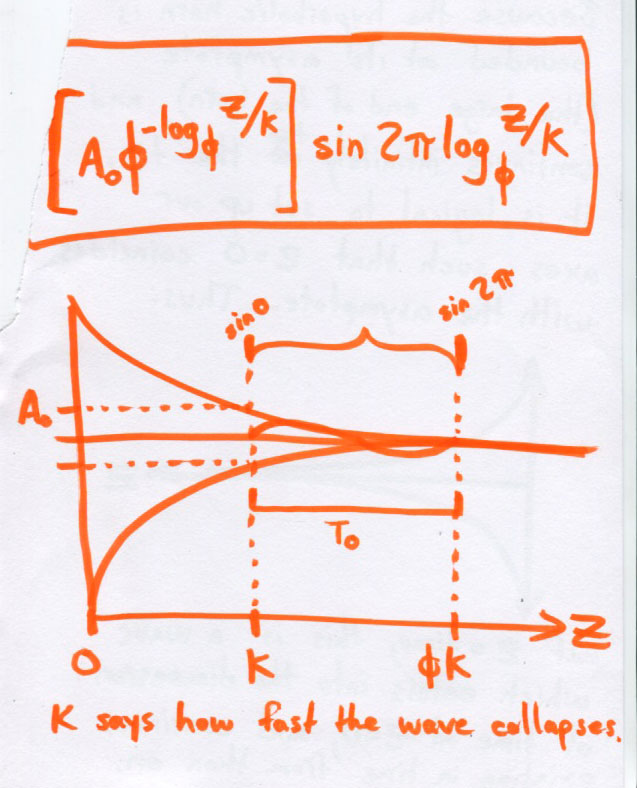 [A₀ϕ^-log_ϕ^z/k] sin 2π log_ϕ^z/k
sin 0
sin 2π
A₀
T₀
0
K
ϕK
Z
K says how fast the wave collapses.